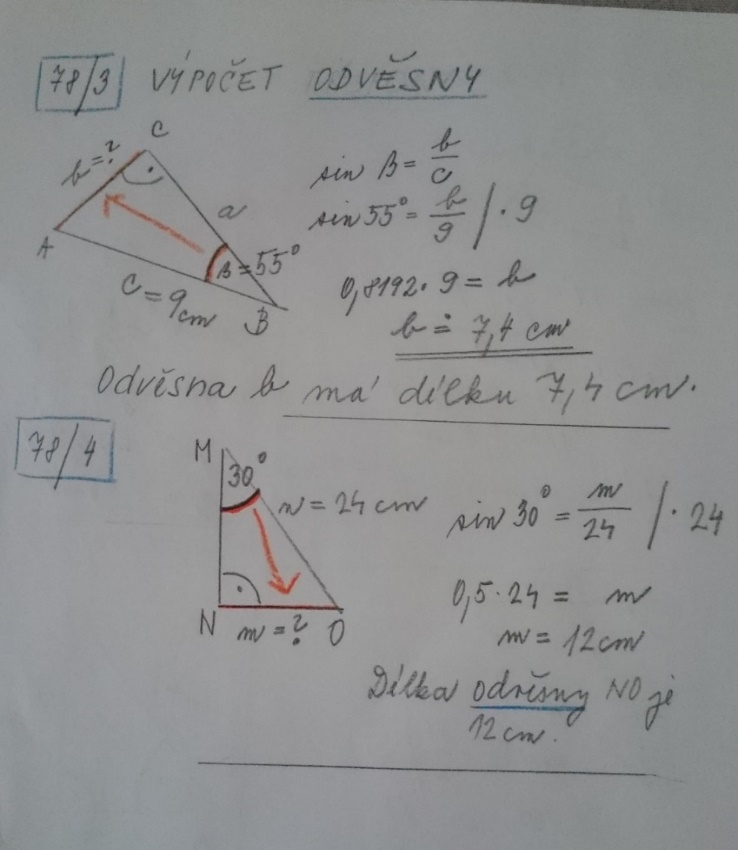 78/3 VÝPOČET ODVĚSNY
C
b=?
a
A
β=55°
c=9cm
B
sin β = b/c
sin 55° = b/9 /·9
0,8192·9 = b
b ≐ 7,4 cm
Odvěsna b má délku 7,4 cm.
78/4
M
30°
n = 24 cm
N m=? O
sin 30° = m/24 /·24
0,5·24 = m
m = 12cm
Délka odvěsny NO je
12cm.